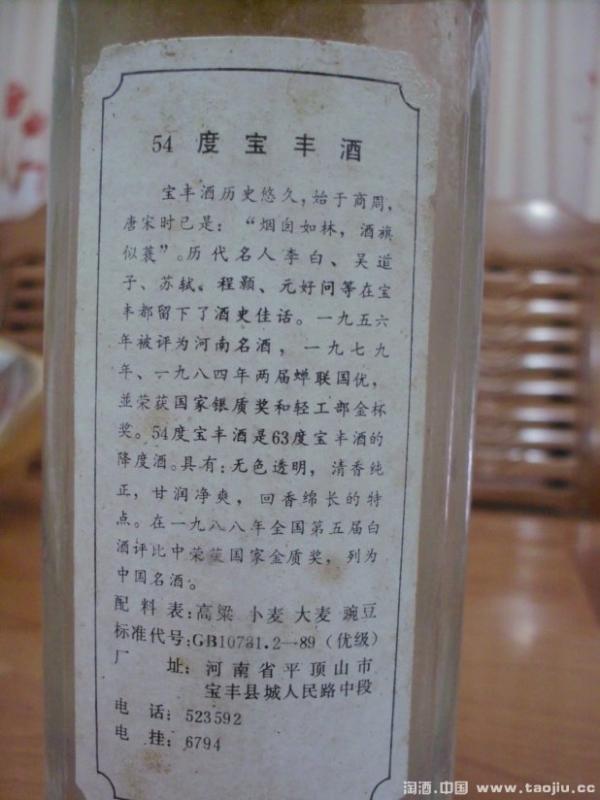 54 度宝丰酒
宝丰酒历史悠久,始于商周,
唐宋时已是:“烟囱如林,酒旗
似蓑”。历代名人李白、吴道
子、苏轼、程颢、元好问等在宝
丰都留下了酒史佳话。一九五六
年被评为河南名酒,一九七九
年、一九八四年两届蝉联国优,
並荣获国家银质奖和轻工部金杯
奖。54度宝丰酒是63度宝丰酒的
降度酒。具有:无色透明,清香纯
正,甘润净爽,回香绵长的特
点。在一九八八年全国第五届白
酒评比中荣获国家金质奖,列为
中国名酒。
配料表:高粱 小麦 大麦 豌豆
标准代号:GB10781.2—89(优级)
厂 址:河南省平顶山市
宝丰县城人民路中段
电 话:523592
电 挂:6794
淘酒.中国 www.taojiu.cc